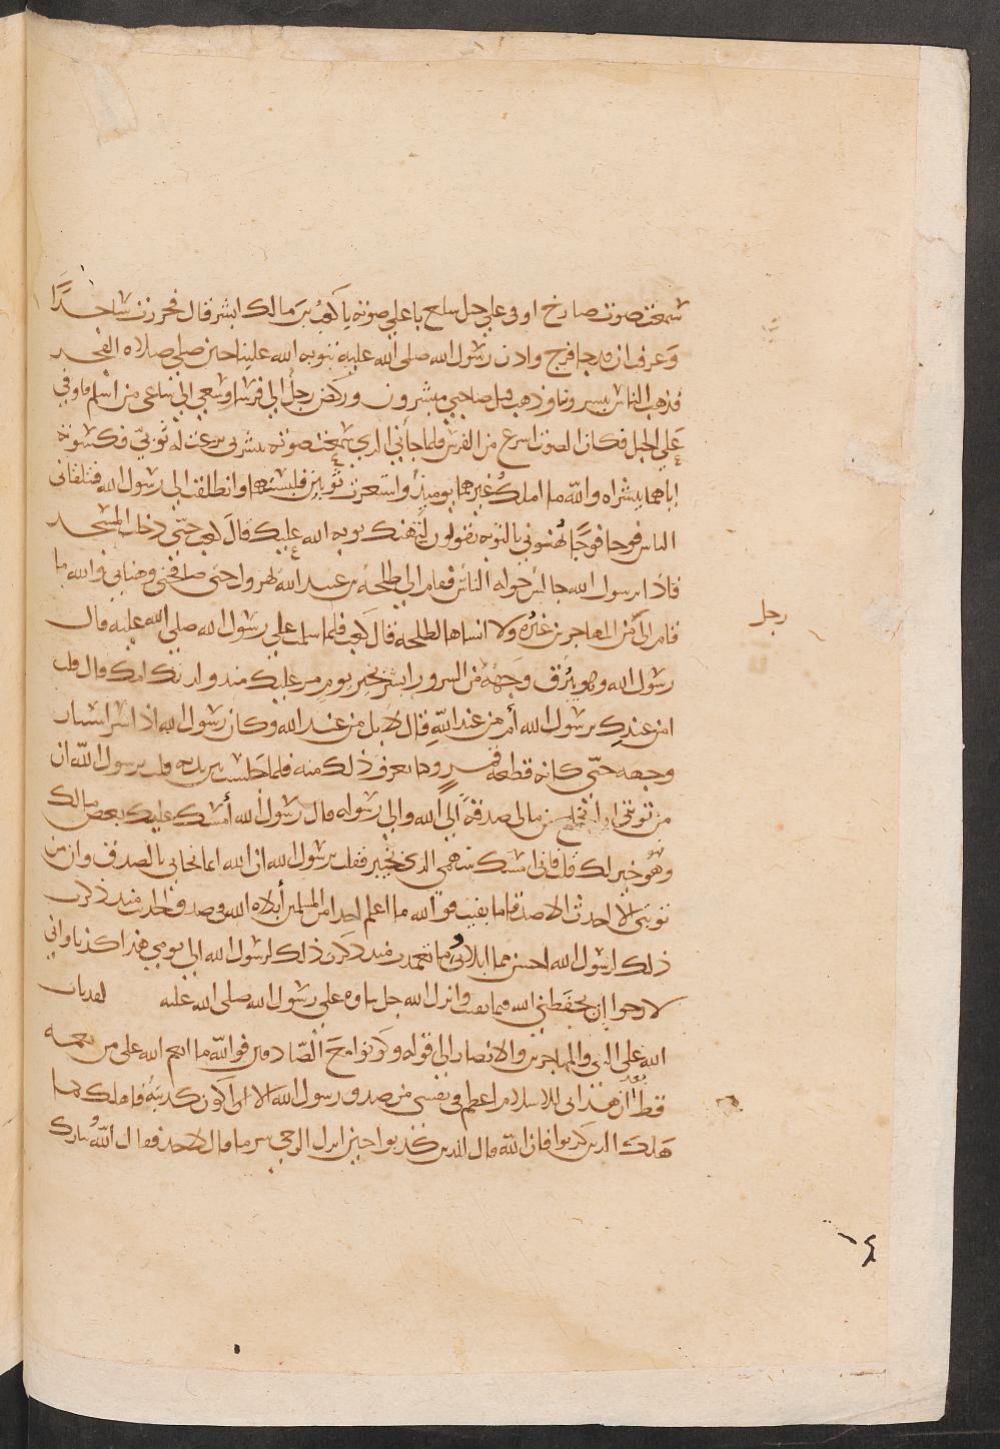 سمعت صوت صارخ اوفى على جبل سلع باعلى صوته يا كعب بن مالك ابشر قال فخررت ساجدًا
وعرفت ان قد جا فرج واذن رسول الله صلى الله عليه بتوبه الله علينا حين صلى صلاه الفجر
فذهب الناس يبشروننا وذهب قبل صاحبي مبشرون وركض رجل الي فرسا وسعي الي ساعى من اسلم فاوفي
علي الجبل فكان الصوت اسرع من الفرس فلما جأني الذي سمعت صوته يبشرنى نزعت له ثوبي فكسوته
اياهما ببشراه والله ما املك غيرهما يوميذ واستعرت ثوبين فلبستهما وانطلقت الى رسول الله فتلقانى
الناس فوجا فوجًا يُهنوني بالتوبه يقولون لتهنك توبه الله عليك قال كعب حتى دخلت المسجد
فاذا رسول الله جالس حوله الناس فقام الي طلحه بن عبيد الله يهرول حتى صافحني وهناني والله ما
قام الي من المهاجرين غيره ولا انساها لطلحه قال كعب فلما سلمت علي رسول الله صلى الله عليه قال
رجل
رسول الله وهو يبرق وجهه من السرور ابشر بخير يوم مر عليك منذ ولدتك امك قال قلت
امن عندك يرسول الله أم من عند الله قال لا بل من عند الله وكان رسول الله اذا استنار
وجهه حتى كانه قطعه قمر وكنا نعرف ذلك منه فلما جلست بين يديه قلت يرسول الله ان
من توبتي ان انخلع من مالى صدقة الى الله والي رسوله قال رسول الله أمسك عليك بعض مالك
وهو خير لك قلت فاني امسك سهمي الذي بخيبر فقلت يرسول الله ان الله انما نجاني بالصدق وان من
توبتي الا احدث الا صدقا ما بقيت فوالله ما اعلم احدا من المسلمين أبلاه الله في صدق الحديث منذ ذكرت
ذلك لرسول الله احسن مما ابلاني ما تعمدت منذ ذكرت ذلك لرسول الله الى يومي هذا كذبا واني
لارجوا ان يحفظني الله فيما بقيت وانزل الله جل ثناوه علي رسول الله صلى الله عليه لقد تاب
الله على النبي والمهاجرين والانصار الى قوله وكونوا مع الصادقين فوالله ما انعم الله على من نعمه
قط بعد ان هذاني للاسلام اعظم في نفسي من صدق رسول الله الا اكون كذبته فاهلك كما
هلك الذين كذبوا فان الله قال للذين كذبوا حين انزل الوحي شر ما قال لاحد فقال الله تبارك
١٤